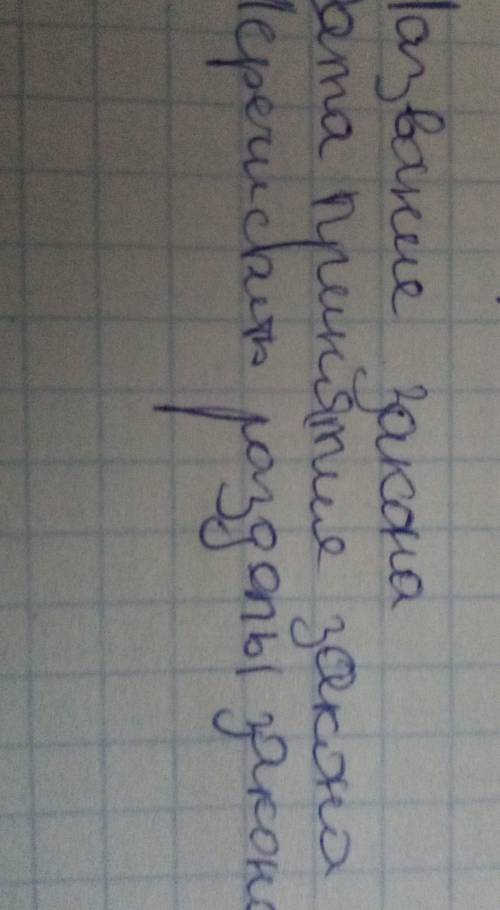 Название закона
Дата принятие закона
Перечислить разделы закона